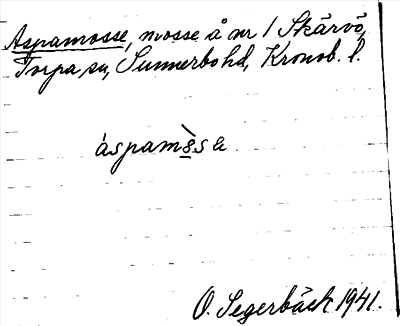 Aspamosse, mosse å nr 1 Skärvö,
Torpa sn, Sunnerbo hd, Kronob. l.
áspamòsa
O. Segerbäck 1941.